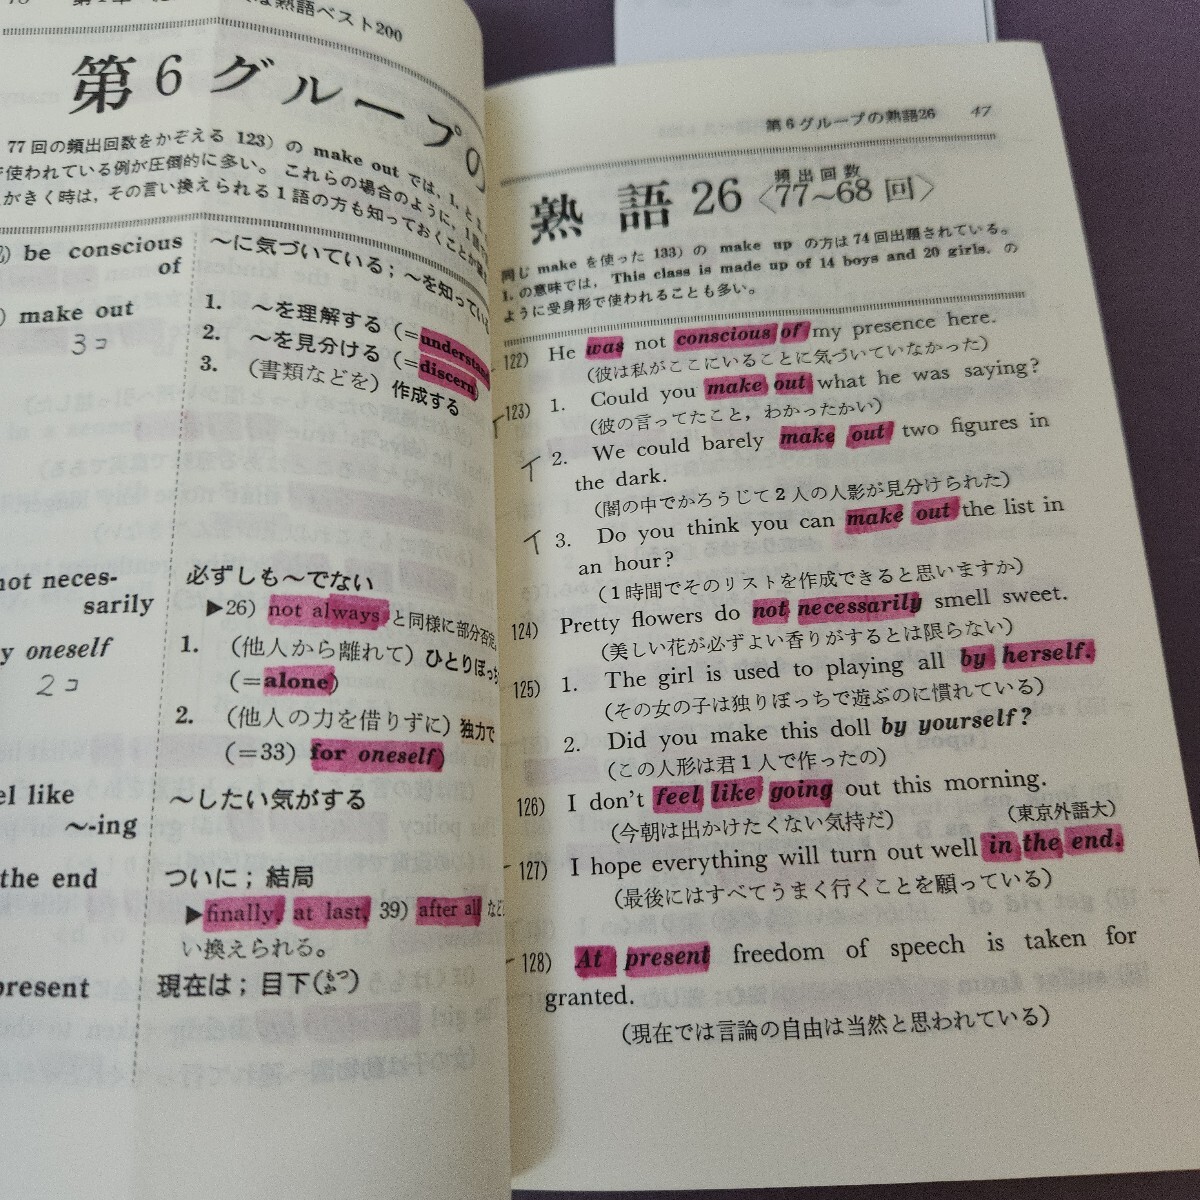 熟語ベスト200
第6グループの
77回の頻出回数をかぞえる 123) の make out では, 1. と
使われている例が圧倒的に多い。これらの場合のように, 1語
がきく時は, その言い換えられる1語の方も知っておくことが
be conscious
of
〜に気づいている; 〜を知っている
make out
3コ
1. 〜を理解する (=understand
2. 〜を見分ける (=discern)
3. (書類などを) 作成する
not neces-
sarily
必ずしも〜でない
▶26) not always と同様に部分否定
y oneself
2コ
1. (他人から離れて) ひとりぼっち
(=alone)
2. (他人の力を借りずに) 独力で
(=33) for oneself)
el like
〜-ing
〜したい気がする
the end
ついに; 結局
▶finally, at last, 39) after all など
い換えられる。
present
現在は; 目下(もっか)
第6グループの熟語26 47
熟語 26 頻出回数〈77〜68 回〉
同じ make を使った 133) の make up の方は74回出題されている。
1. の意味では, This class is made up of 14 boys and 20 girls. の
ように受身形で使われることも多い。
122) He was not conscious of my presence here.
(彼は私がここにいることに気づいていなかった)
123) 1. Could you make out what he was saying?
(彼の言ってたこと, わかったかい)
2. We could barely make out two figures in
the dark.
(闇の中でかろうじて2人の人影が見分けられた)
3. Do you think you can make out the list in
an hour?
(1時間でそのリストを作成できると思いますか)
124) Pretty flowers do not necessarily smell sweet.
(美しい花が必ずよい香りがするとは限らない)
125) 1. The girl is used to playing all by herself.
(その女の子は独りぼっちで遊ぶのに慣れている)
2. Did you make this doll by yourself?
(この人形は君1人で作ったの)
126) I don't feel like going out this morning.
(今朝は出かけたくない気持だ) (東京外語大)
127) I hope everything will turn out well in the end.
(最後にはすべてうまく行くことを願っている)
128) At present freedom of speech is taken for
granted.
(現在では言論の自由は当然と思われている)